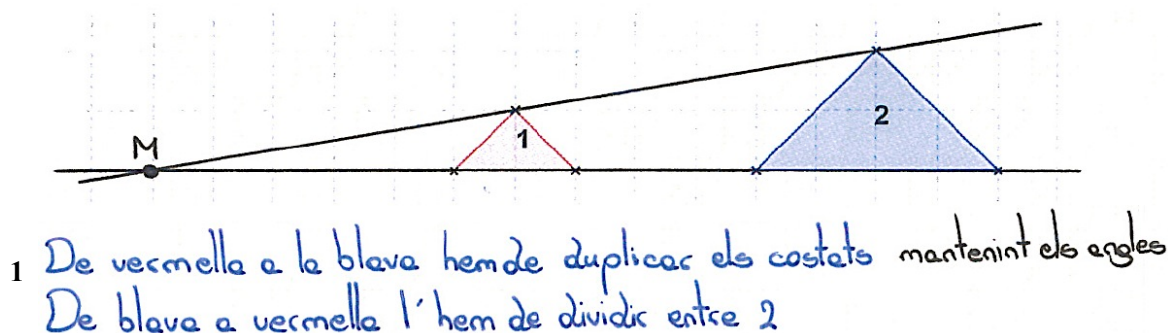 M
1
2
1 De vermella a la blava hem de duplicar els costats mantenint els angles
De blava a vermella l'hem de dividir entre 2